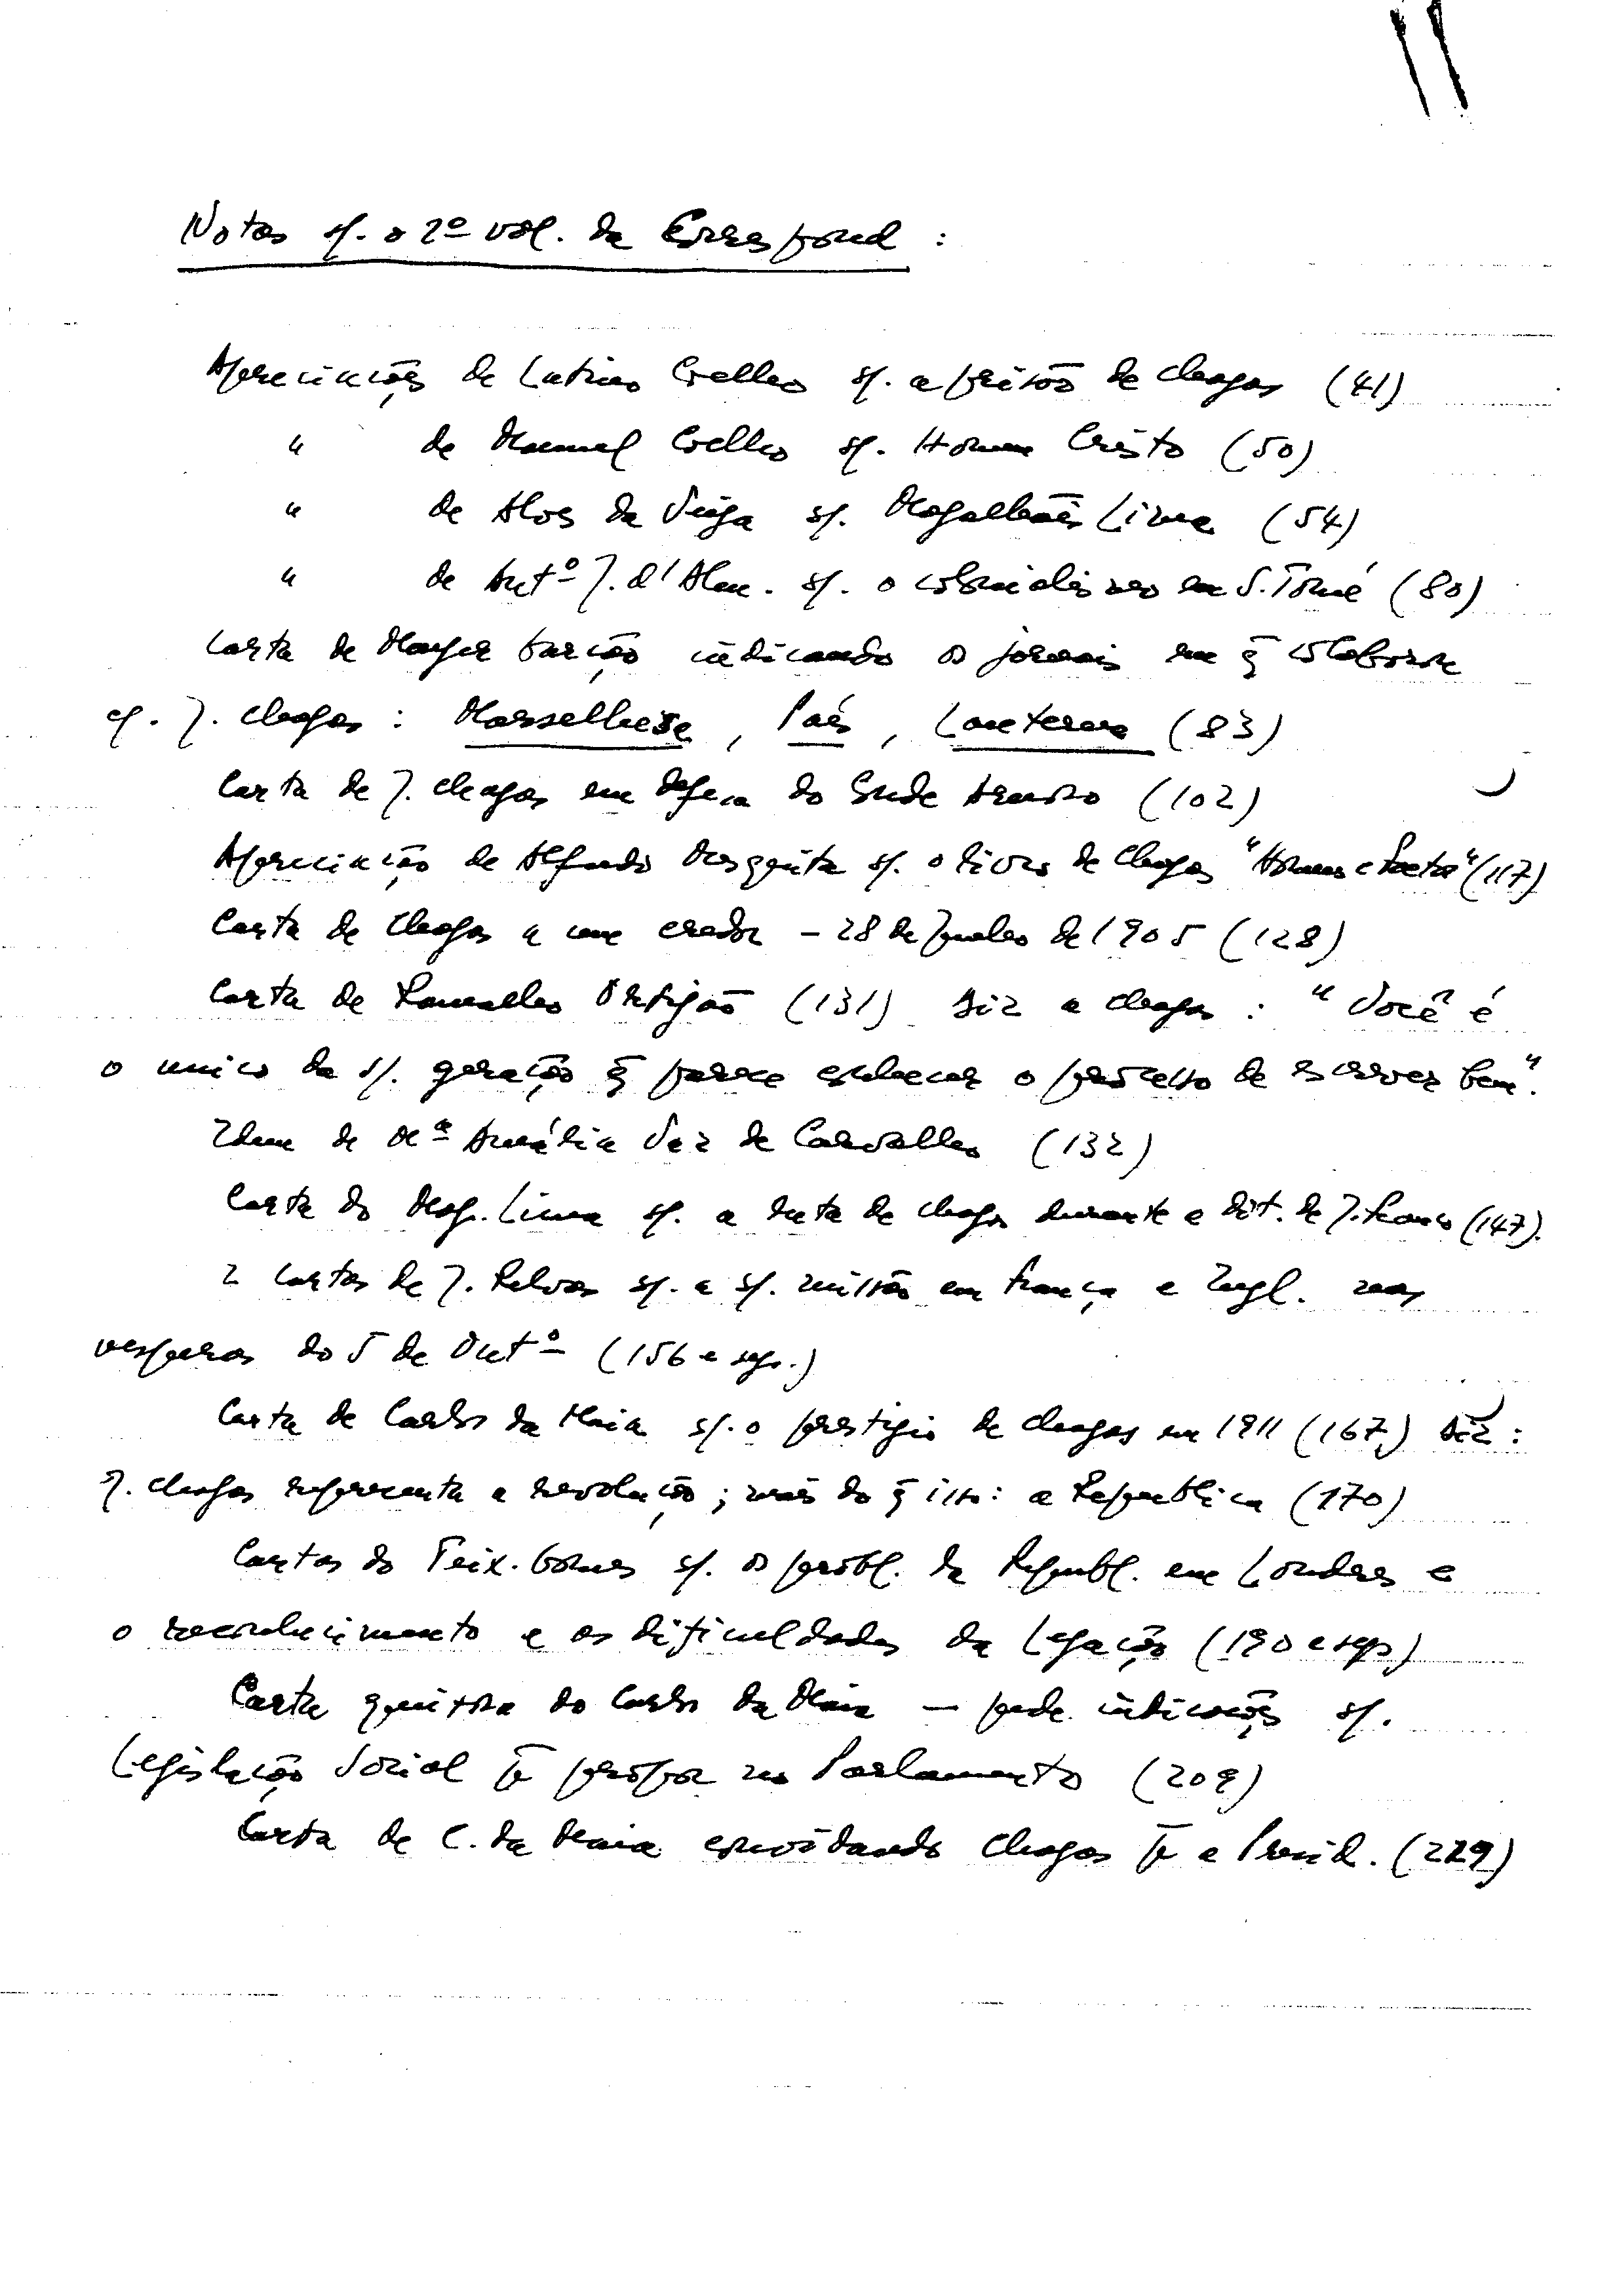 Notas s/. o 2º vol. da Correspond :
Apreciações de Latino Coelho s/. a prisão de Chagas (41)
" de Manuel Coelho s/. Homem Cristo (50)
" de Alves da Veiga s/. Magalhães Lima (54)
" de Antº J. d'Alm. s/. o colonialismo em S. Tomé (80)
Carta de Mayer Garção indicando os jornais em q̃ colabora
c/. J. Chagas : Marselhesa, País, Lanterna (83)
Carta de J. Chagas em defesa do Gde Armo (102)
Apreciação de Alfredo Mesquita s/. o livro de Chagas "Homens e Factos" (117)
Carta de Chagas a um credor - 28 de Junho de 1905 (128)
Carta de Ramalho Ortigão (131) Diz a Chagas : "Você é
o unico da s/. geração q̃ parece conhecer o processo de escrever bem".
Idem de Mª Amália Vaz de Carvalho (132)
Carta do Mag. Lima s/. a luta de Chagas durante a dit. de J. Franco (147).
2 Cartas de J. Relvas s/. a s/. missão em França e Ingl. nas
vesperas do 5 de Outº (156 e segs.)
Carta de Carlos da Maia s/. o prestigio de Chagas em 1911 (167) Diz :
J. Chagas representa a revolução ; mais do q̃ isso : a Republica (170)
Cartas do Teix. Gomes s/. os probl. da Republ. em Londres e
o reconhecimento e as dificuldades da Legação (190 e segs)
Carta do Carlos da Maia - pede indicações s/.
Legislação Social p̃ propor no Parlamento (209)
Carta de C. da Maia convidando Chagas p̃ a Presid. (229)